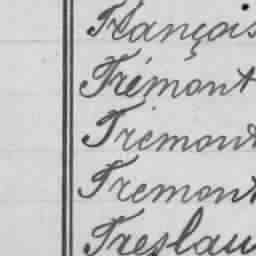 François
Trémont
Trémont
Tremont
Treslau